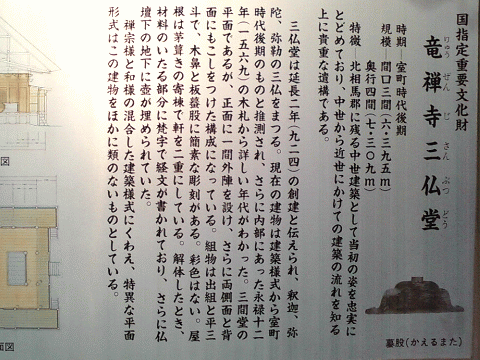 国指定重要文化財
竜禅寺三仏堂
りゅうぜんじさんぶつどう
時期―室町時代後期
規模―間口三間(六・三九五m)
奥行四間(七・三〇九m)
特徴 北相馬郡に残る中世建築として当初の姿を忠実に
とどめており、中世から近世にかけての建築の流れを知る
上に貴重な遺構である。
三仏堂は延長二年(九二四)の創建と伝えられ、釈迦、弥
陀、弥勒の三仏をまつる。現在の建物は建築様式から室町
時代後期のものと推測され、さらに内部にあった永禄十二
年(一五六九)の木札から詳しい年代がわかった。三間堂の
平面であるが、正面に一間外陣を設け、さらに両側面と背
面にもこしをつけた構成になっている。組物は出組と平三
斗で、木鼻と板蟇股に簡素な彫刻がある。彩色はない。屋
根は茅葺きの寄棟で軒を二重にしている。解体したとき、
材料のいたる部分に梵字で経文が書かれており、さらに仏
壇下の地下に壺が埋められていた。
禅宗様と和様の混合した建築様式にくわえ、特異な平面
形式はこの建物をほかに類のないものとしている。
蟇股(かえるまた)
図
面図